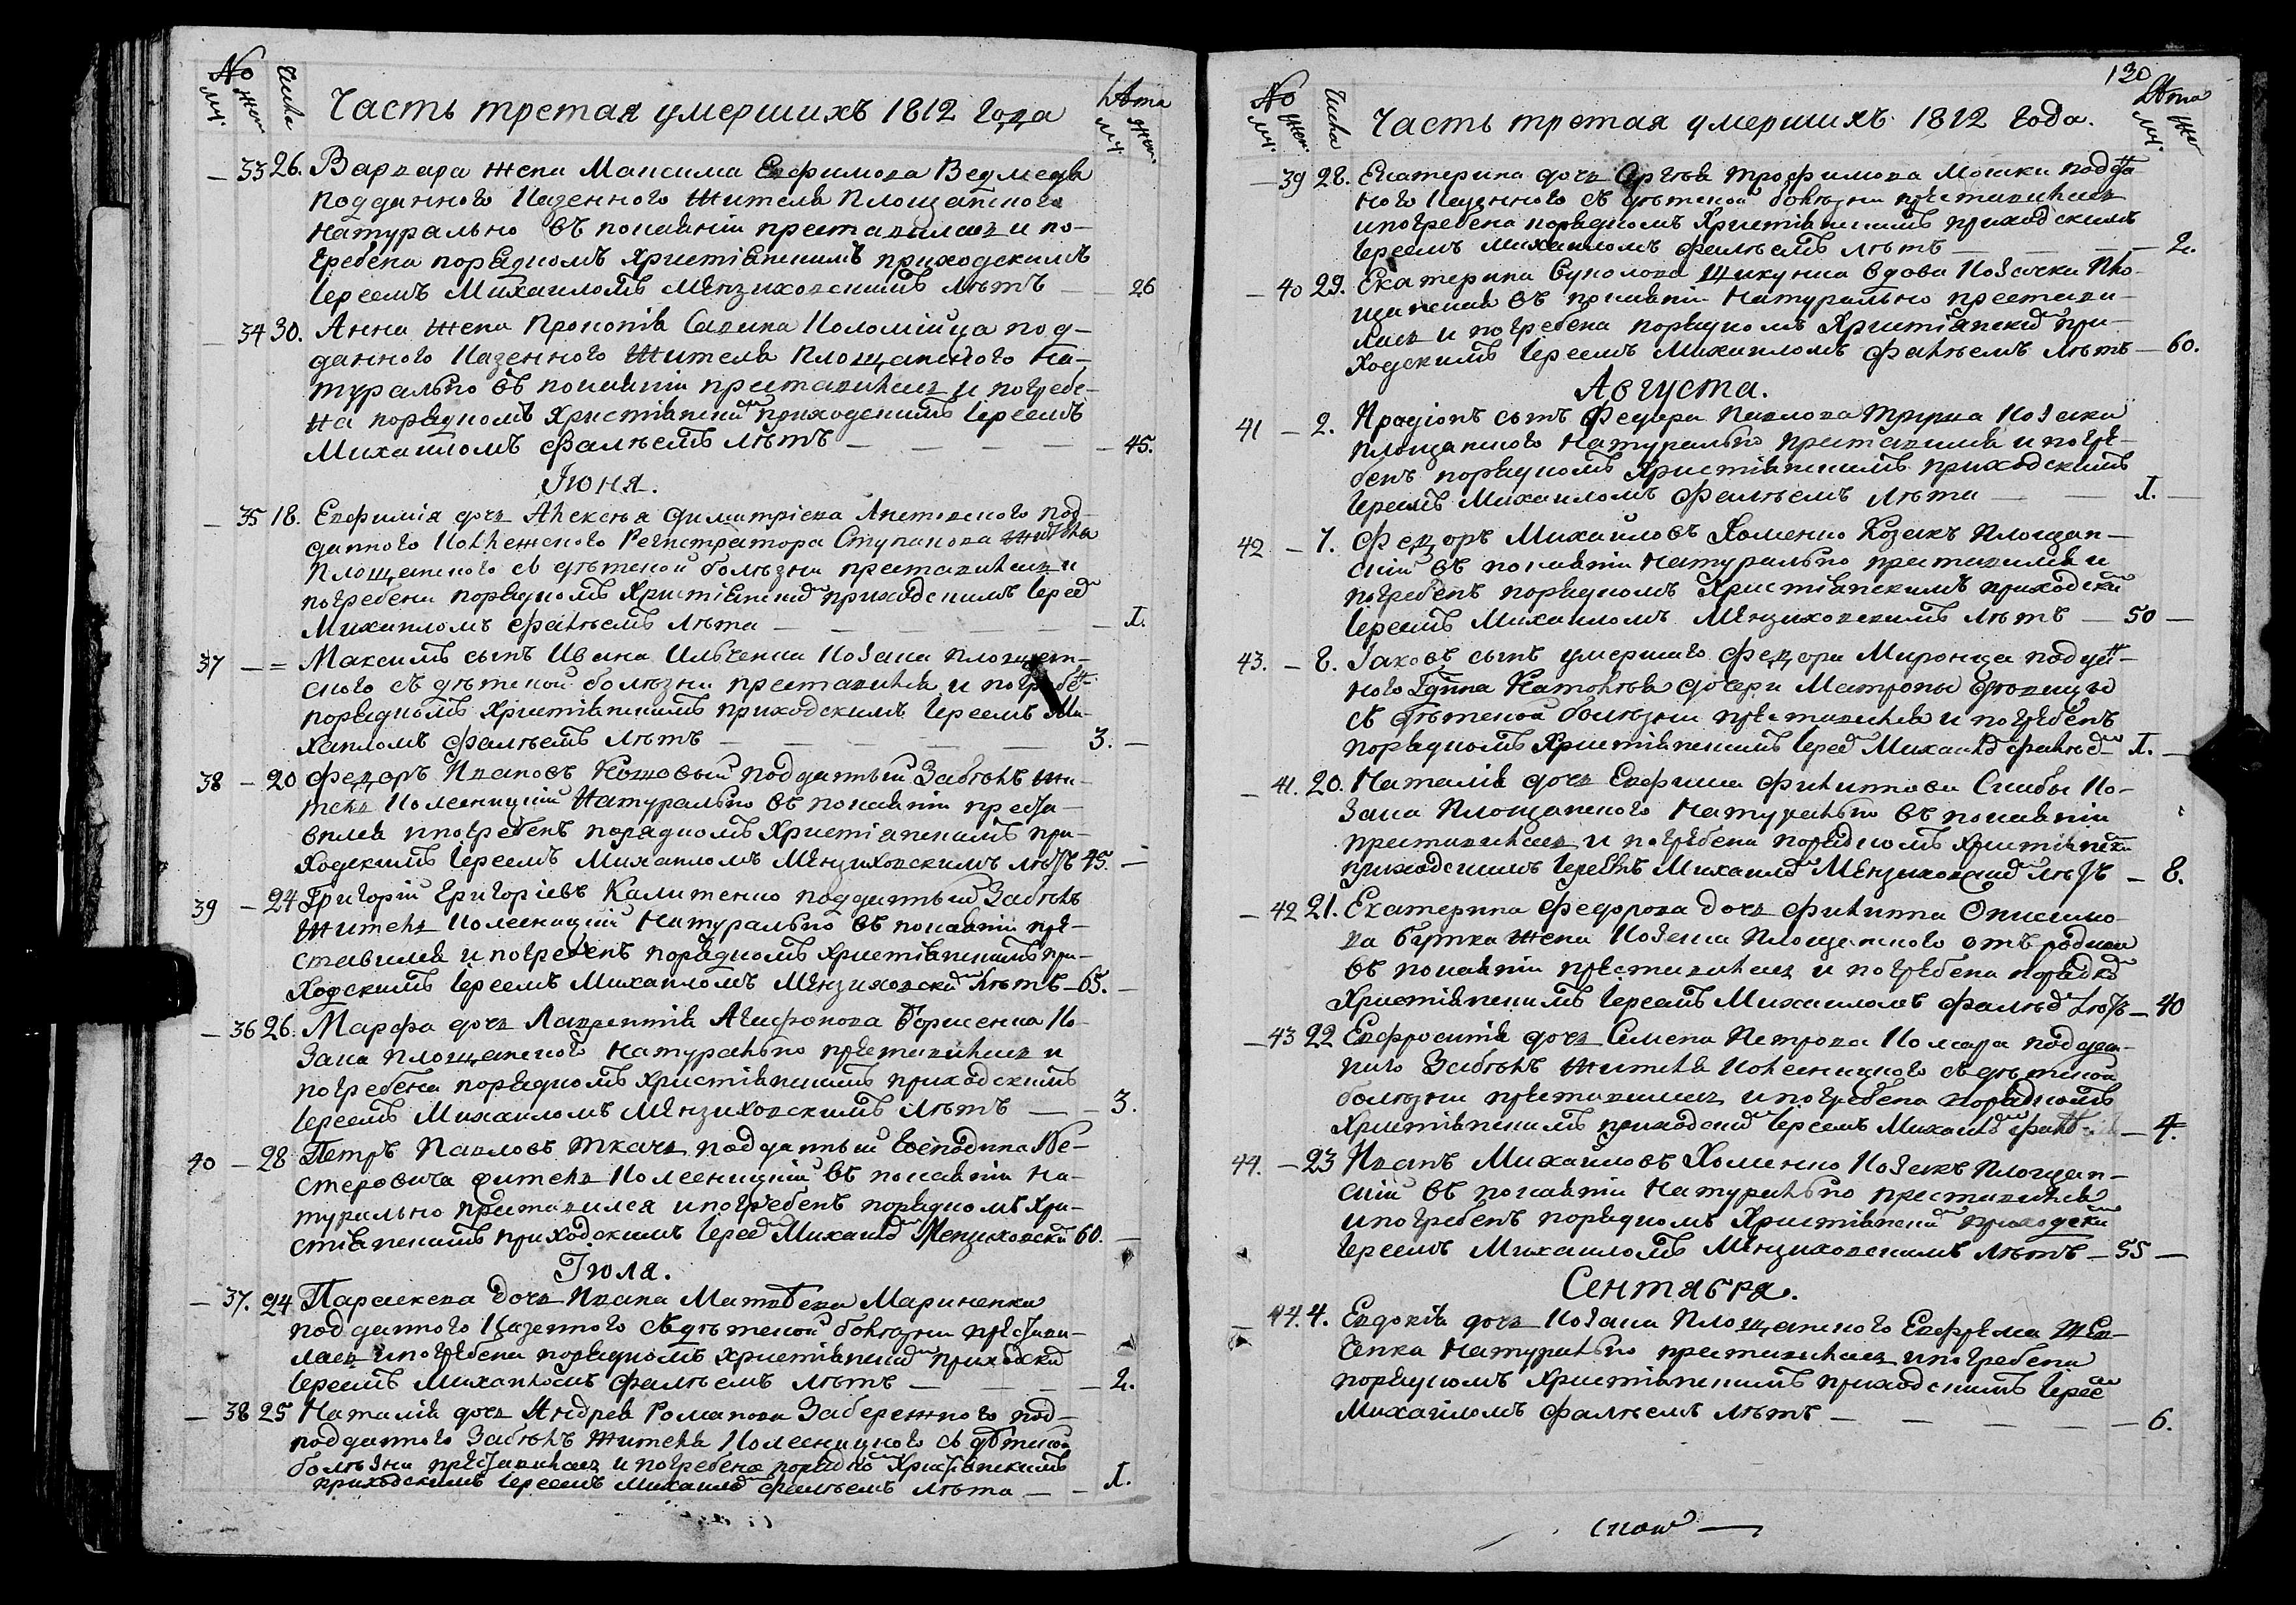 № муж. жен.
Числа
Часть третая умершихъ 1812 года
Лѣта муж. жен.
— 33 26. Варвара жена Максима Евфимова Ведмедя
подданного Казенного жителя Площанского
натурально въ покаянiи преставилась и по-
гребена порядкомъ Христiянскимъ приходскимъ
Iереемъ Михаиломъ Мензиховскимъ лѣтъ — 26
— 34 30. Анна жена Прокопiя Савина Коломiйца под-
данного Казенного жителя Площанского на-
турально въ покаянiи преставилась и погребе-
на порядкомъ Христiянским приходскимъ Iереемъ
Михаиломъ Фалѣемъ лѣтъ — — — — 45.
Iюня.
— 35 18. Евфимiя дочь Алексѣя Димитрiева под-
данного Коллежского Регистратора Ступакова жителя
Площанского съ дѣтской болѣзни преставилась и
погребена порядкомъ Христiянским приходскимъ Iерее
Михаиломъ Фалѣемъ лѣта — — — — 1.
37 — = Максимъ сынъ Ивана Ильченка Козака Площан-
ского съ дѣтской болѣзни преставился и погребен
порядкомъ Христiянскимъ приходскимъ Iереемъ Ми-
хаиломъ Фалѣемъ лѣтъ — — — — 3. —
38 — 20 Федоръ Ивановъ Кошовый подданный Забѣлѣ жи-
тель Колесницкiй натурально въ покаянiи преста-
вился и погребенъ порядкомъ Христiянскимъ при-
ходскимъ Iереемъ Михаиломъ Мензиховскимъ лѣтъ 45. —
39 — 24 Григорiй Григорiевъ Калитенко подданный Забѣлѣ
житель Колесницкiй натурально въ покаянiи пре-
ставился и погребенъ порядкомъ Христiянскимъ при-
ходскимъ Iереемъ Михаиломъ Мензиховски лѣтъ — 65. —
— 36 26. Марфа дочь Лаврентiя Агафонова Борисенка Ко-
зака Площанского натурально преставилась и
погребена порядкомъ Христiянскимъ приходскимъ
Iереемъ Михаиломъ Мензиховскимъ лѣтъ — — 3.
40 — 28 Петръ Павловъ Ткачь подданный Господина Не-
стеровича житель Колесницкiй въ покаянiи на-
турально преставился и погребенъ порядкомъ Хри-
стiянскимъ приходскимъ Iерее Михаило Мензиховски 60. —
Iюля.
— 37. 24 Параскева дочь Ивана Матвѣева Мариненка
подданного Казенного съ дѣтской болѣзни престави-
лась и погребена порядкомъ Христiянским приходски
Iереемъ Михаиломъ Фалѣемъ лѣтъ — — — 2.
— 38 25 Наталiя дочь Андрея Романова Забережного под-
подданного Забѣлѣ жителя Колесницкого съ дѣтской
болѣзни преставилась и погребена порядко Христiянскимъ
приходскимъ Iереемъ Михаило Фалѣемъ лѣта — — 1.
130
№ муж. жен.
Числа
Часть третая умершихъ 1812 года.
Лѣта муж. жен
— 39 28. Екатерина дочь Сергѣя Трофимова Мошки поддан-
ного Казенного съ дѣтской болѣзни преставилась
и погребена порядкомъ Христiянскимъ приходскимъ
Iереемъ Михаиломъ Фалѣемъ лѣтъ — — — 2.
— 40 29. Екатерина вдова Козачка Пло-
щанская въ покаянiи натурально престави-
лась и погребена порядкомъ Христiянски при-
ходскимъ Iереемъ Михаиломъ Фалѣемъ лѣтъ — 60.
Августа.
41 — 2. Иродiонъ сынъ Федора Павлова Козака
Площанского натурально преставился и погре-
бенъ порядкомъ Христiянскимъ приходскимъ
Iереемъ Михаиломъ Фалѣемъ лѣта — — 1. —
42 — 7. Федоръ Михайловъ Хоменко Козакъ Площан-
скiй въ покаянiи натурально преставился и
погребенъ порядкомъ Христiянскимъ приходски
Iереемъ Михаиломъ Мензиховскимъ лѣтъ — 50 —
43. — 8. Iаковъ сынъ умершаго Федора Миронца поддан-
ного дочери Матроны дѣвицы
съ дѣтской болѣзни преставился и погребенъ
порядкомъ Христiянскимъ Iерее Михаило Фалѣе 1. —
— 41. 20. Наталiя дочь Евфима Филиппова Скибы Ко-
зака Площанского натурально въ покаянiи
преставилась и погребена порядкомъ Христiянски
приходскимъ Iереемъ Михаило Мензиховски лѣтъ — 8.
— 42 21. Екатерина Федорова дочь Филиппа
Бутка жена Козака Площанского отъ родива
въ покаянiи преставилась и погребена порядко
Христiянскимъ Iереемъ Михаиломъ Фалѣе лѣтъ — 40
— 43 22 Евфросинiя дочь Семена Петрова Комара поддан-
ного Забѣлѣ жителя Колесницкого съ дѣтской
болѣзни преставилась и погребена порядкомъ
Христiянскимъ приходски Iереемъ Михаило Фалѣ — 4.
44. — 23 Иванъ Михайловъ Хоменко Козакъ Площан-
скiй въ покаянiи натурально преставился
и погребенъ порядкомъ Христiянски приходски
Iереемъ Михаиломъ Мензиховскимъ лѣтъ — 55 —
Сентября.
— 44. 4. Евдокiя дочь Козака Площанского Евфрема Шев-
ченка натурально преставилась и погребена
порядкомъ Христiянскимъ приходскимъ Iерее
Михаиломъ Фалѣемъ лѣтъ — — — — — 6.